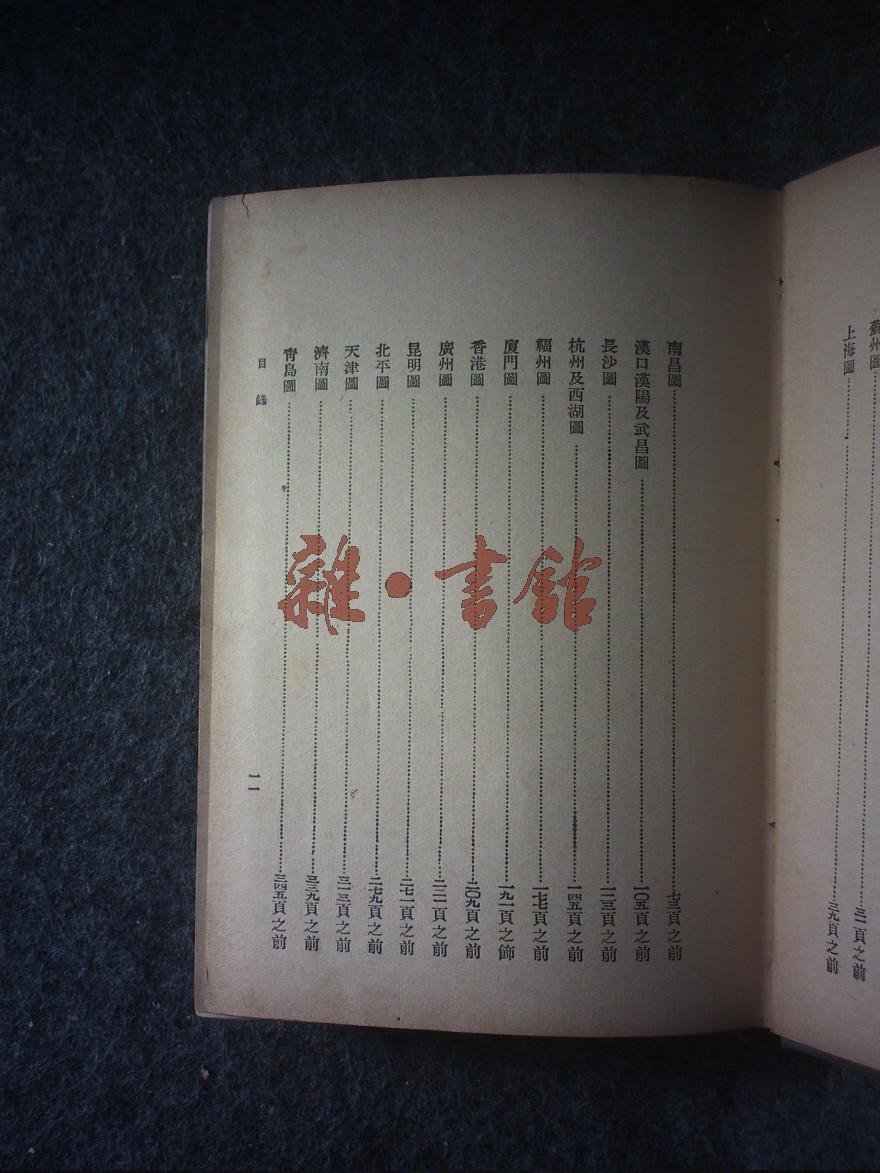 蘇州圖……三一頁之前
上海圖……三九頁之前
南昌圖……七三頁之前
漢口漢陽及武昌圖……一〇五頁之前
長沙圖……一二三頁之前
杭州及西湖圖……一四五頁之前
福州圖……一七七頁之前
廈門圖……一九一頁之飾
香港圖……二〇九頁之前
廣州圖……二二一頁之前
昆明圖……二七一頁之前
北平圖……二七九頁之前
天津圖……三一三頁之前
濟南圖……三三九頁之前
青島圖……三四五頁之前
目錄
二
雜·書館